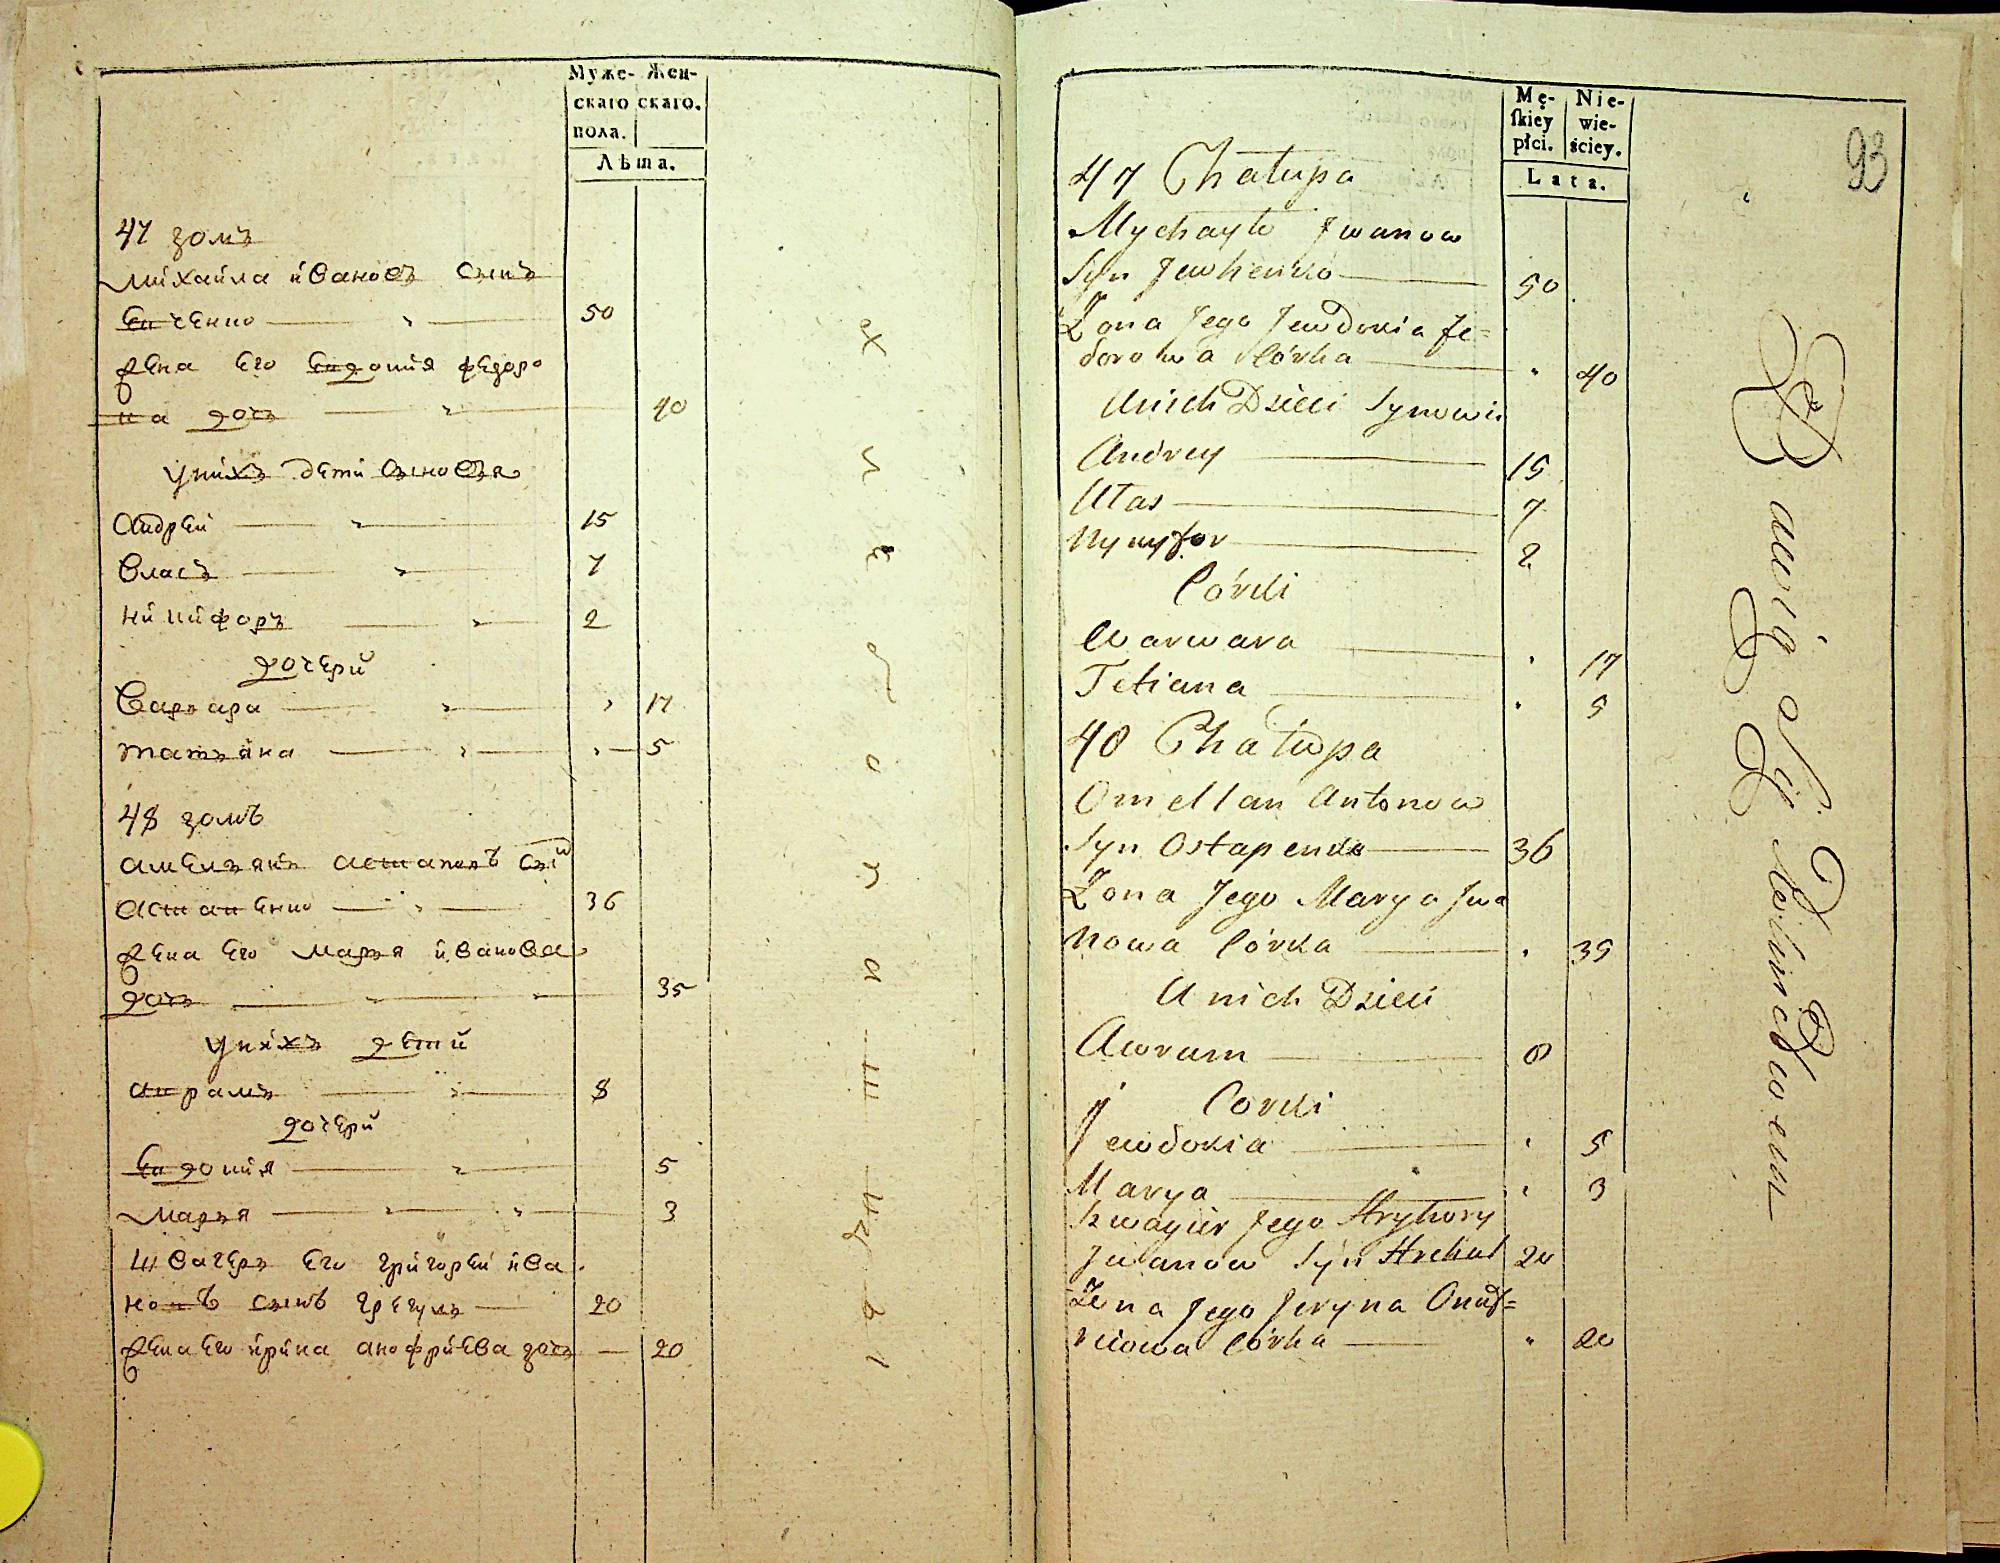 Муже- Жен-
скаго скаго.
пола.
Лѣта.
47 домъ
Михайла ивановъ сынъ
Евченко 50
жена Его Евдокия федоро
ва дочь 40
уних дети сыновья
Андрей 15
Власъ 7
Никифоръ 2
дочери
Варвара 17
татьяна 5
48 домъ
Амельянъ Астаповъ сынъ
Астапенко 36
жена Его Марья иванова
дочь 35
унихъ дети
Аврамъ 8
дочери
Евдокия 5
Марья 3
Швагеръ Его григорей ива
новъ сынъ грегуль 20
жена Его ирина анофриева дочь 20
93
Mę- Nie-
skiey wie-
płci. ściey.
Lata.
47 Chałupa
Mychayło Jwanow
Syn Jewhenko 50
Żona Jego Jewdokia Fe=
dorowa Córka 40
U nich Dzieci Synowie
Andrey 15
Ułas 7
Nykyfor 2
Córki
Warwara 17
Tetiana 5
48 Chałupa
Omelian Antonow
Syn Ostapenko 36
Żona Jego Marya Jwa
nowa Córka 35
U nich Dzieci
Awram 8
Corki
Jewdokia 5
Marya 3
Szwagier Jego Hryhory
Jwanow Syn Hrehul 20
Żona Jego Jeryna Onuf=
reiowa Córka 20